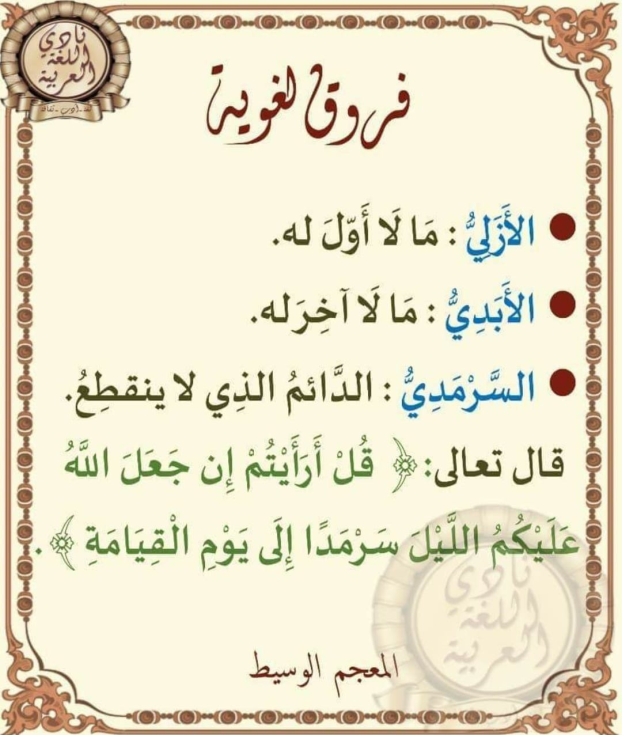 نادي
اللغة
العربية
فروق لغوية
الأَزَلِيُّ : مَا لَا أَوّلَ له.
الأَبَدِيُّ : مَا لَا آخِرَ له.
السَّرْمَدِيُّ : الدَّائمُ الذِي لا ينقطِعُ.
قال تعالى: ﴿ قُلْ أَرَأَيْتُمْ إِن جَعَلَ اللَّهُ
عَلَيْكُمُ اللَّيْلَ سَرْمَدًا إِلَى يَوْمِ الْقِيَامَةِ ﴾.
نادي
اللغة
العربية
المعجم الوسيط